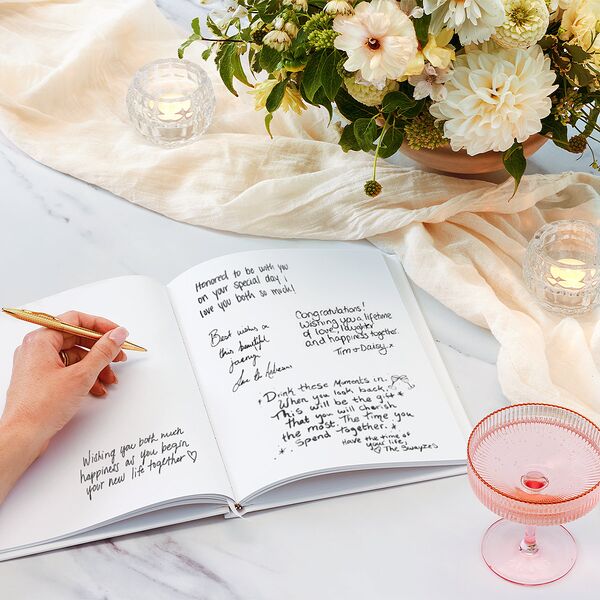 Wishing you both much
happiness as you begin
your new life together ♡
Honored to be with you
on your special day!
love you both so much!
Best wishes on
this beautiful
journey
Congratulations!
Wishing you a lifetime
of love, laughter
and happiness together.
Tim + Daisy x
Drink these Moments in.
When you look back
This will be the gift
that you will cherish
the most. The time you
Spend together.
Have the time of
your life,
♡ The Swayzes